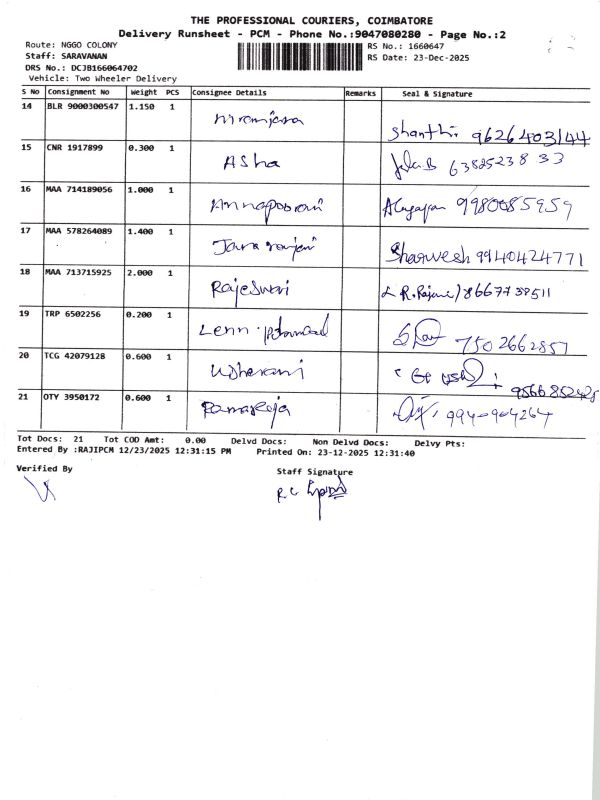 THE PROFESSIONAL COURIERS, COIMBATORE
Delivery Runsheet - PCM - Phone No.:9047080280 - Page No.:2
Route: NGGO COLONY
RS No.: 1660647
Staff: SARAVANAN
RS Date: 23-Dec-2025
DRS No.: DCJB166064702
Vehicle: Two Wheeler Delivery
S No Consignment No Weight PCS Consignee Details Remarks Seal & Signature
14 BLR 9000300547 1.150 1 Shanthi. 9626403144
15 CNR 1917899 0.300 1 Asha 63825238 33
16 MAA 714189056 1.000 1 Annapoorani 9980085959
17 MAA 578264089 1.400 1 Sharwesh 9940424771
18 MAA 713715925 2.000 1 Rajeswari R.Rajani 8667738511
19 TRP 6502256 0.200 1 7502662857
20 TCG 42079128 0.600 1
21 OTY 3950172 0.600 1 Ramaraja
Tot Docs: 21 Tot COD Amt: 0.00 Delvd Docs: Non Delvd Docs: Delvy Pts:
Entered By :RAJIPCM 12/23/2025 12:31:15 PM Printed On: 23-12-2025 12:31:40
Verified By
Staff Signature